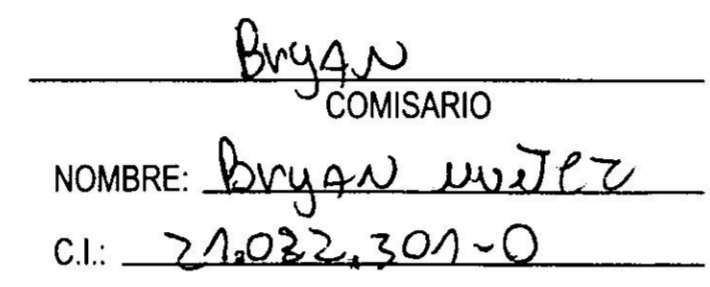 Bryan
COMISARIO
NOMBRE: Bryan Nuñez
C.I.: 21.032.301-0